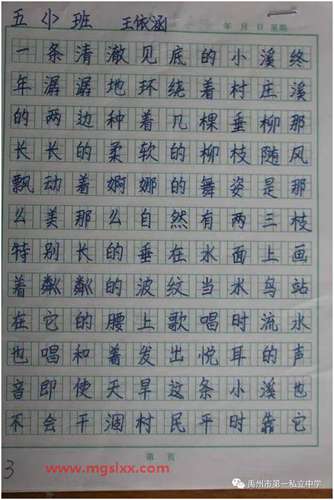 五小班 王依涵
年 月 日 星期
一条清澈见底的小溪终
年潺潺地环绕着村庄溪
的两边种着几棵垂柳那
长长的柔软的柳枝随风
飘动着婀娜的舞姿是那
么美那么自然有两三枝
特别长的垂在水面上画
着粼粼的波纹当水鸟站
在它的腰上歌唱时流水
也唱和着发出悦耳的声
音即使天旱这条小溪也
不会干涸村民平时靠它
第 页
3
www.mgslxx.com
禹州市第一私立中学